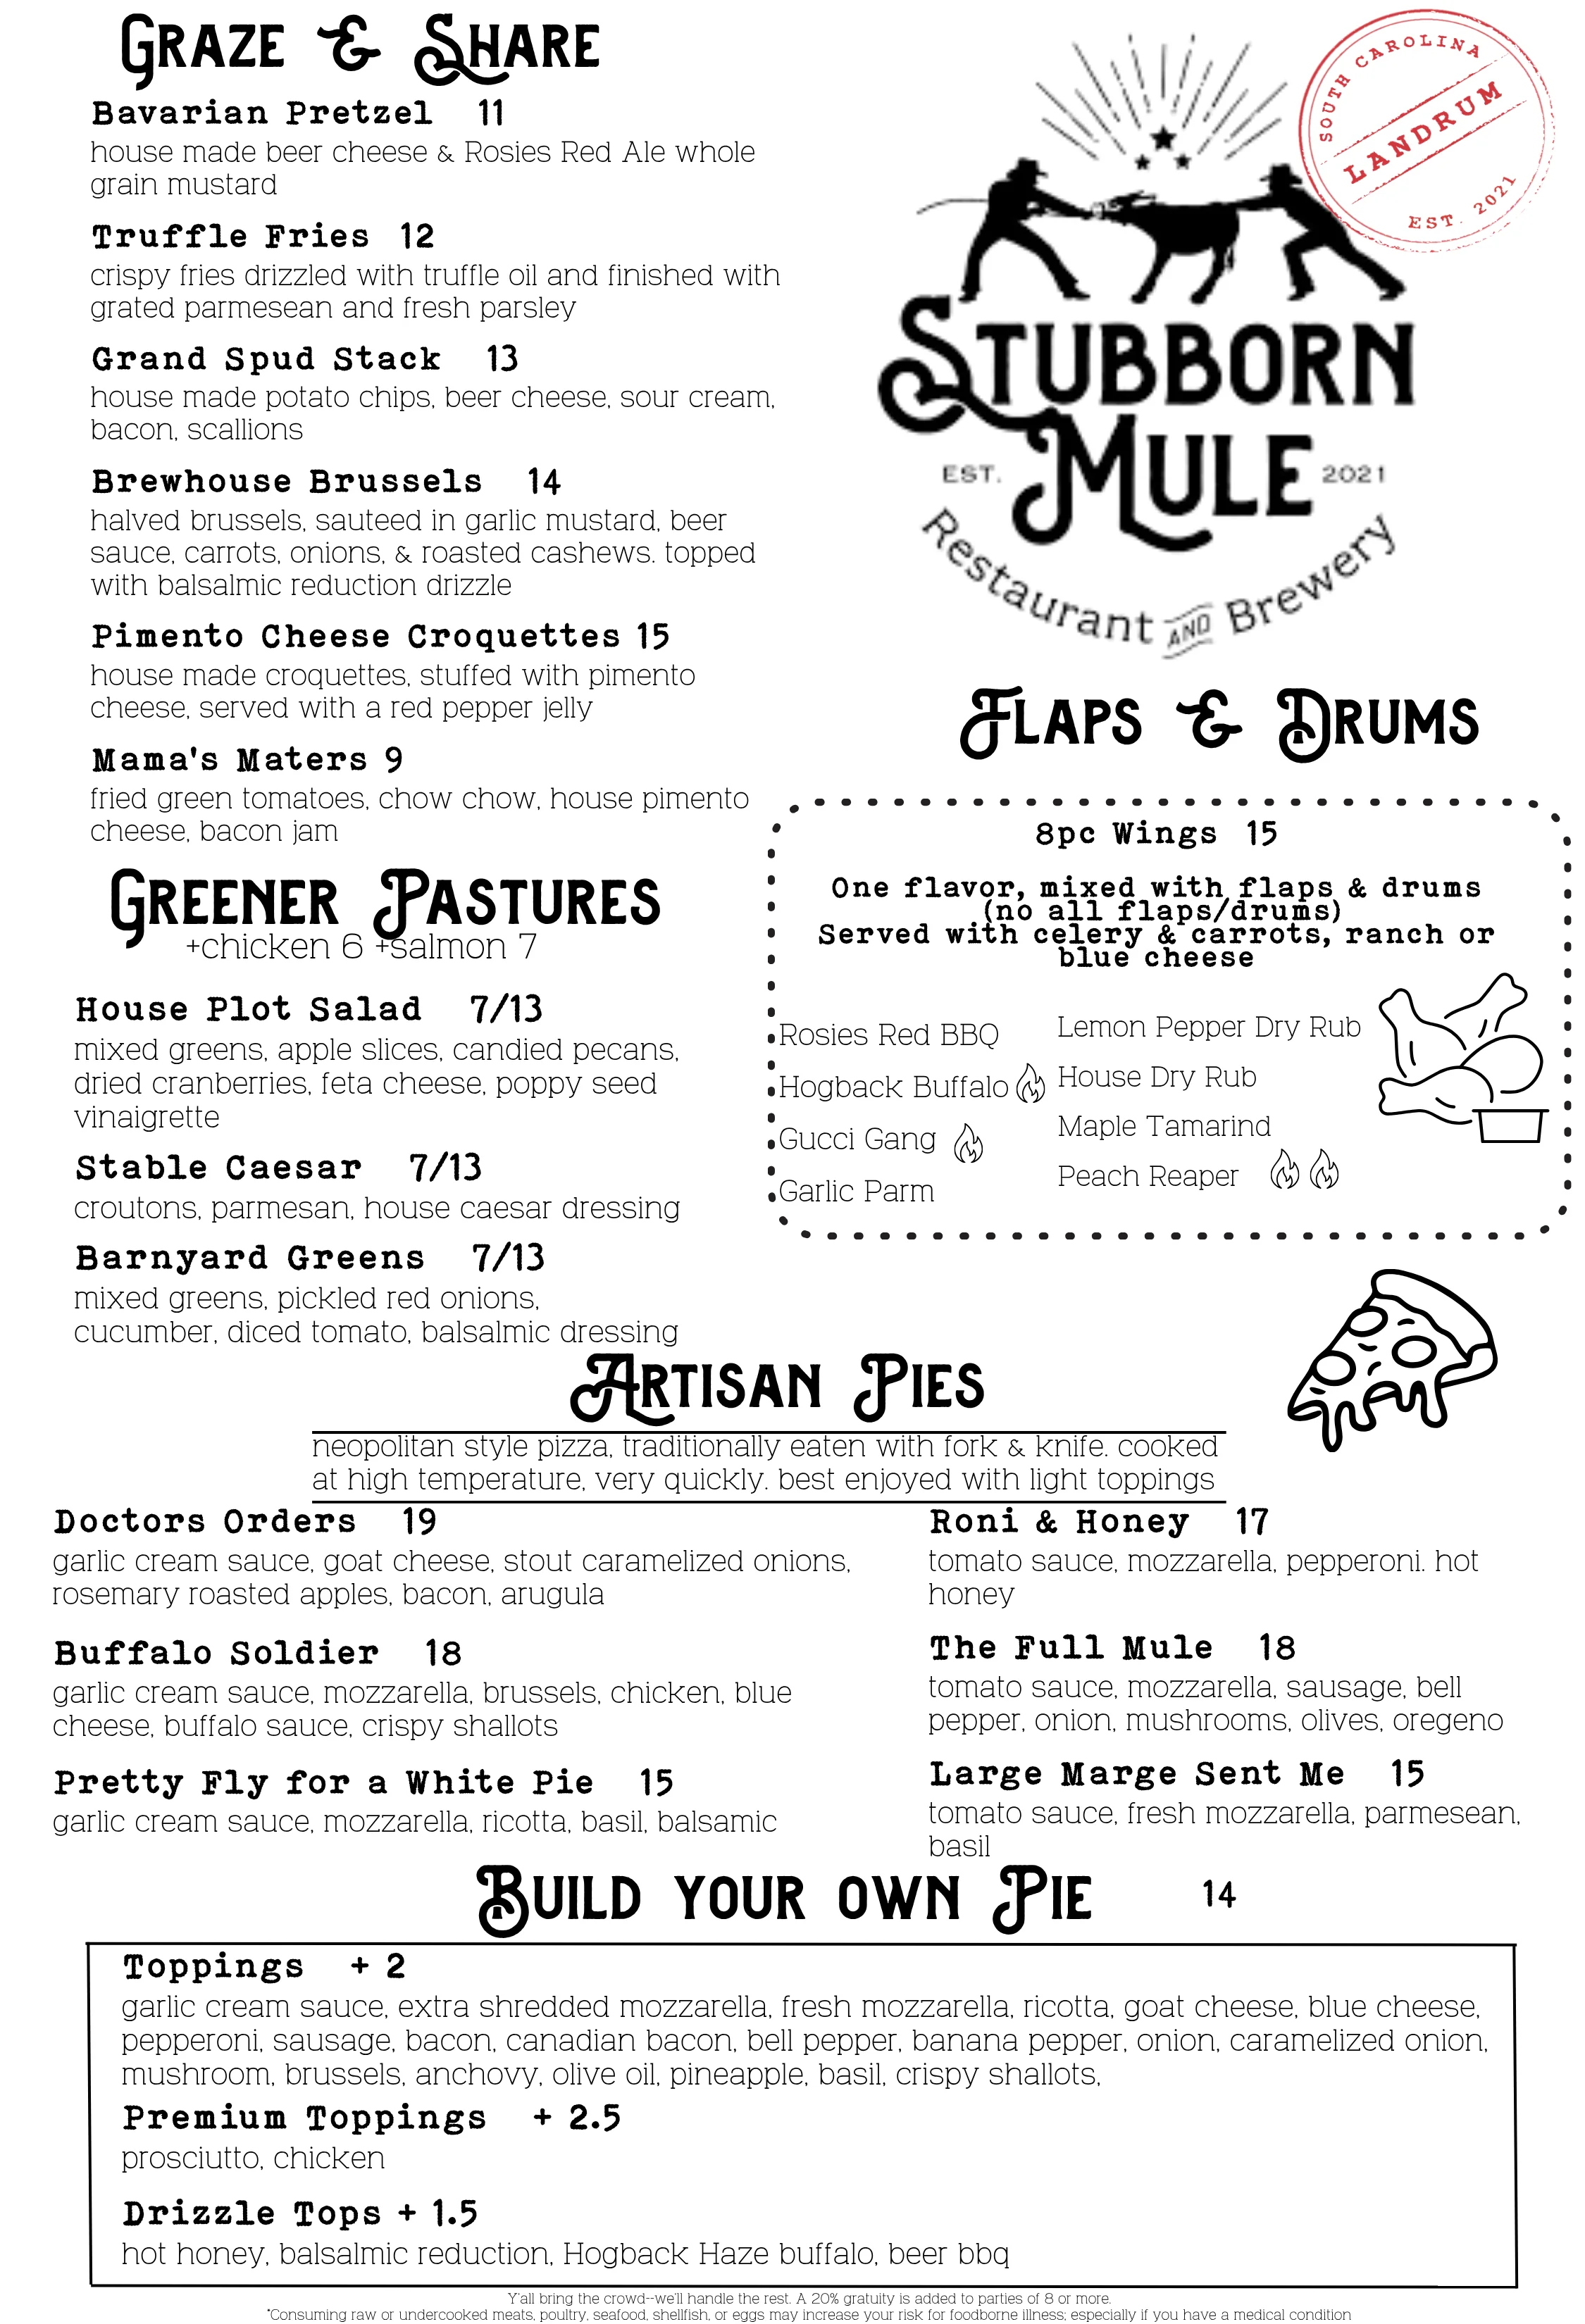 Graze & Share
Bavarian Pretzel 11
house made beer cheese & Rosies Red Ale whole
grain mustard
Truffle Fries 12
crispy fries drizzled with truffle oil and finished with
grated parmesean and fresh parsley
Grand Spud Stack 13
house made potato chips, beer cheese, sour cream,
bacon, scallions
Brewhouse Brussels 14
halved brussels, sauteed in garlic mustard, beer
sauce, carrots, onions, & roasted cashews. topped
with balsalmic reduction drizzle
Pimento Cheese Croquettes 15
house made croquettes, stuffed with pimento
cheese, served with a red pepper jelly
Mama's Maters 9
fried green tomatoes, chow chow, house pimento
cheese, bacon jam
Greener Pastures
+chicken 6 +salmon 7
House Plot Salad 7/13
mixed greens, apple slices, candied pecans,
dried cranberries, feta cheese, poppy seed
vinaigrette
Stable Caesar 7/13
croutons, parmesan, house caesar dressing
Barnyard Greens 7/13
mixed greens, pickled red onions,
cucumber, diced tomato, balsalmic dressing
SOUTH CAROLINA
LANDRUM
EST. 2021
Stubborn
Mule
EST. 2021
Restaurant AND Brewery
Flaps & Drums
8pc Wings 15
One flavor, mixed with flaps & drums
(no all flaps/drums)
Served with celery & carrots, ranch or
blue cheese
Rosies Red BBQ
Hogback Buffalo
Gucci Gang
Garlic Parm
Lemon Pepper Dry Rub
House Dry Rub
Maple Tamarind
Peach Reaper
Artisan Pies
neopolitan style pizza, traditionally eaten with fork & knife. cooked
at high temperature, very quickly. best enjoyed with light toppings
Doctors Orders 19
garlic cream sauce, goat cheese, stout caramelized onions,
rosemary roasted apples, bacon, arugula
Buffalo Soldier 18
garlic cream sauce, mozzarella, brussels, chicken, blue
cheese, buffalo sauce, crispy shallots
Pretty Fly for a White Pie 15
garlic cream sauce, mozzarella, ricotta, basil, balsamic
Roni & Honey 17
tomato sauce, mozzarella, pepperoni. hot
honey
The Full Mule 18
tomato sauce, mozzarella, sausage, bell
pepper, onion, mushrooms, olives, oregeno
Large Marge Sent Me 15
tomato sauce, fresh mozzarella, parmesean,
basil
Build your own Pie 14
Toppings + 2
garlic cream sauce, extra shredded mozzarella, fresh mozzarella, ricotta, goat cheese, blue cheese,
pepperoni, sausage, bacon, canadian bacon, bell pepper, banana pepper, onion, caramelized onion,
mushroom, brussels, anchovy, olive oil, pineapple, basil, crispy shallots,
Premium Toppings + 2.5
prosciutto, chicken
Drizzle Tops + 1.5
hot honey, balsalmic reduction, Hogback Haze buffalo, beer bbq
Y'all bring the crowd--we'll handle the rest. A 20% gratuity is added to parties of 8 or more.
*Consuming raw or undercooked meats, poultry, seafood, shellfish, or eggs may increase your risk for foodborne illness; especially if you have a medical condition